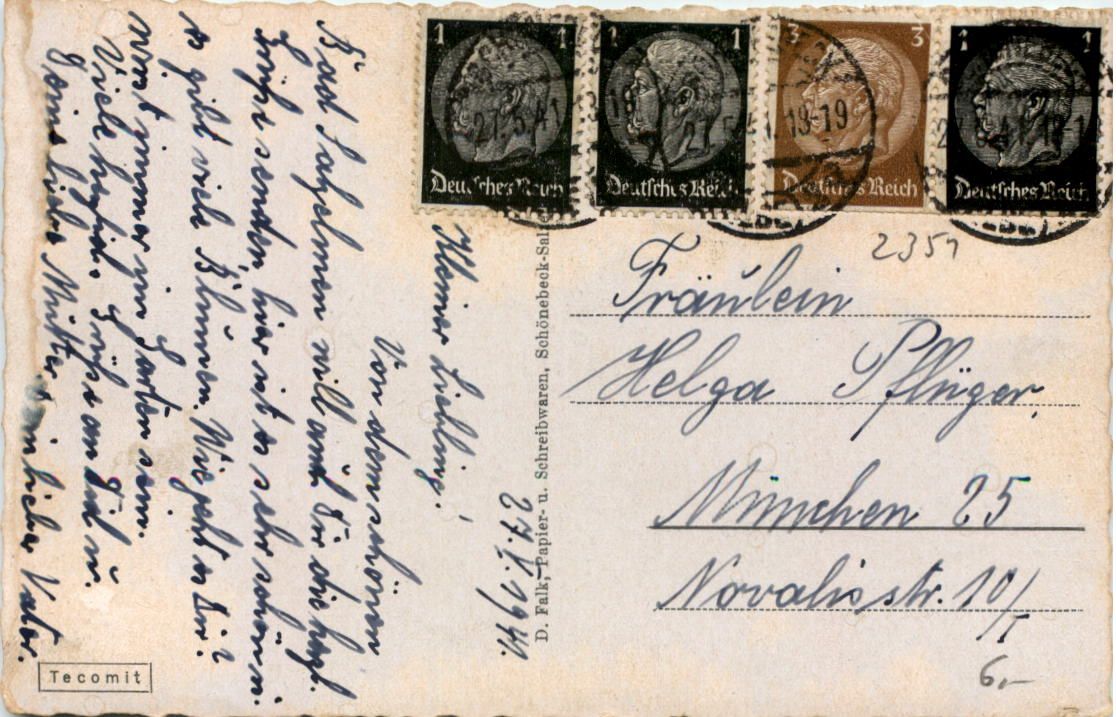 27.5.1941.
Kleiner Liebling!
Von dem schönen
Bad Salzelmen will auch Dir die herzl.
Grüße senden, hier ist es sehr schön u.
es gibt viele Blumen. Wie geht es Dir?
wirst immer im Garten sein.
Viele herzlich. Grüße an Dich u.
Deine liebe Mutter, Dein lieber Vater.
Tecomit
D. Falk, Papier- u. Schreibwaren, Schönebeck-Sal
1 1
Deutsches Reich
1 1
Deutsches Reich
3 3
Deutsches Reich
1 1
Deutsches Reich
27.5.41
18-19
2351
Fräulein
Helga Pflüger,
München 25
Novalisstr. 10/I
6,-